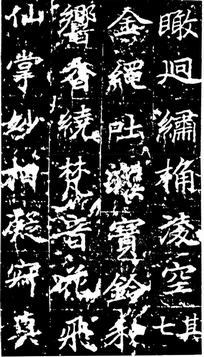 瞰迥繡桷淩空其七
金繩吐寶鈴和
響香繞梵音花飛
仙掌妙相凝寂真